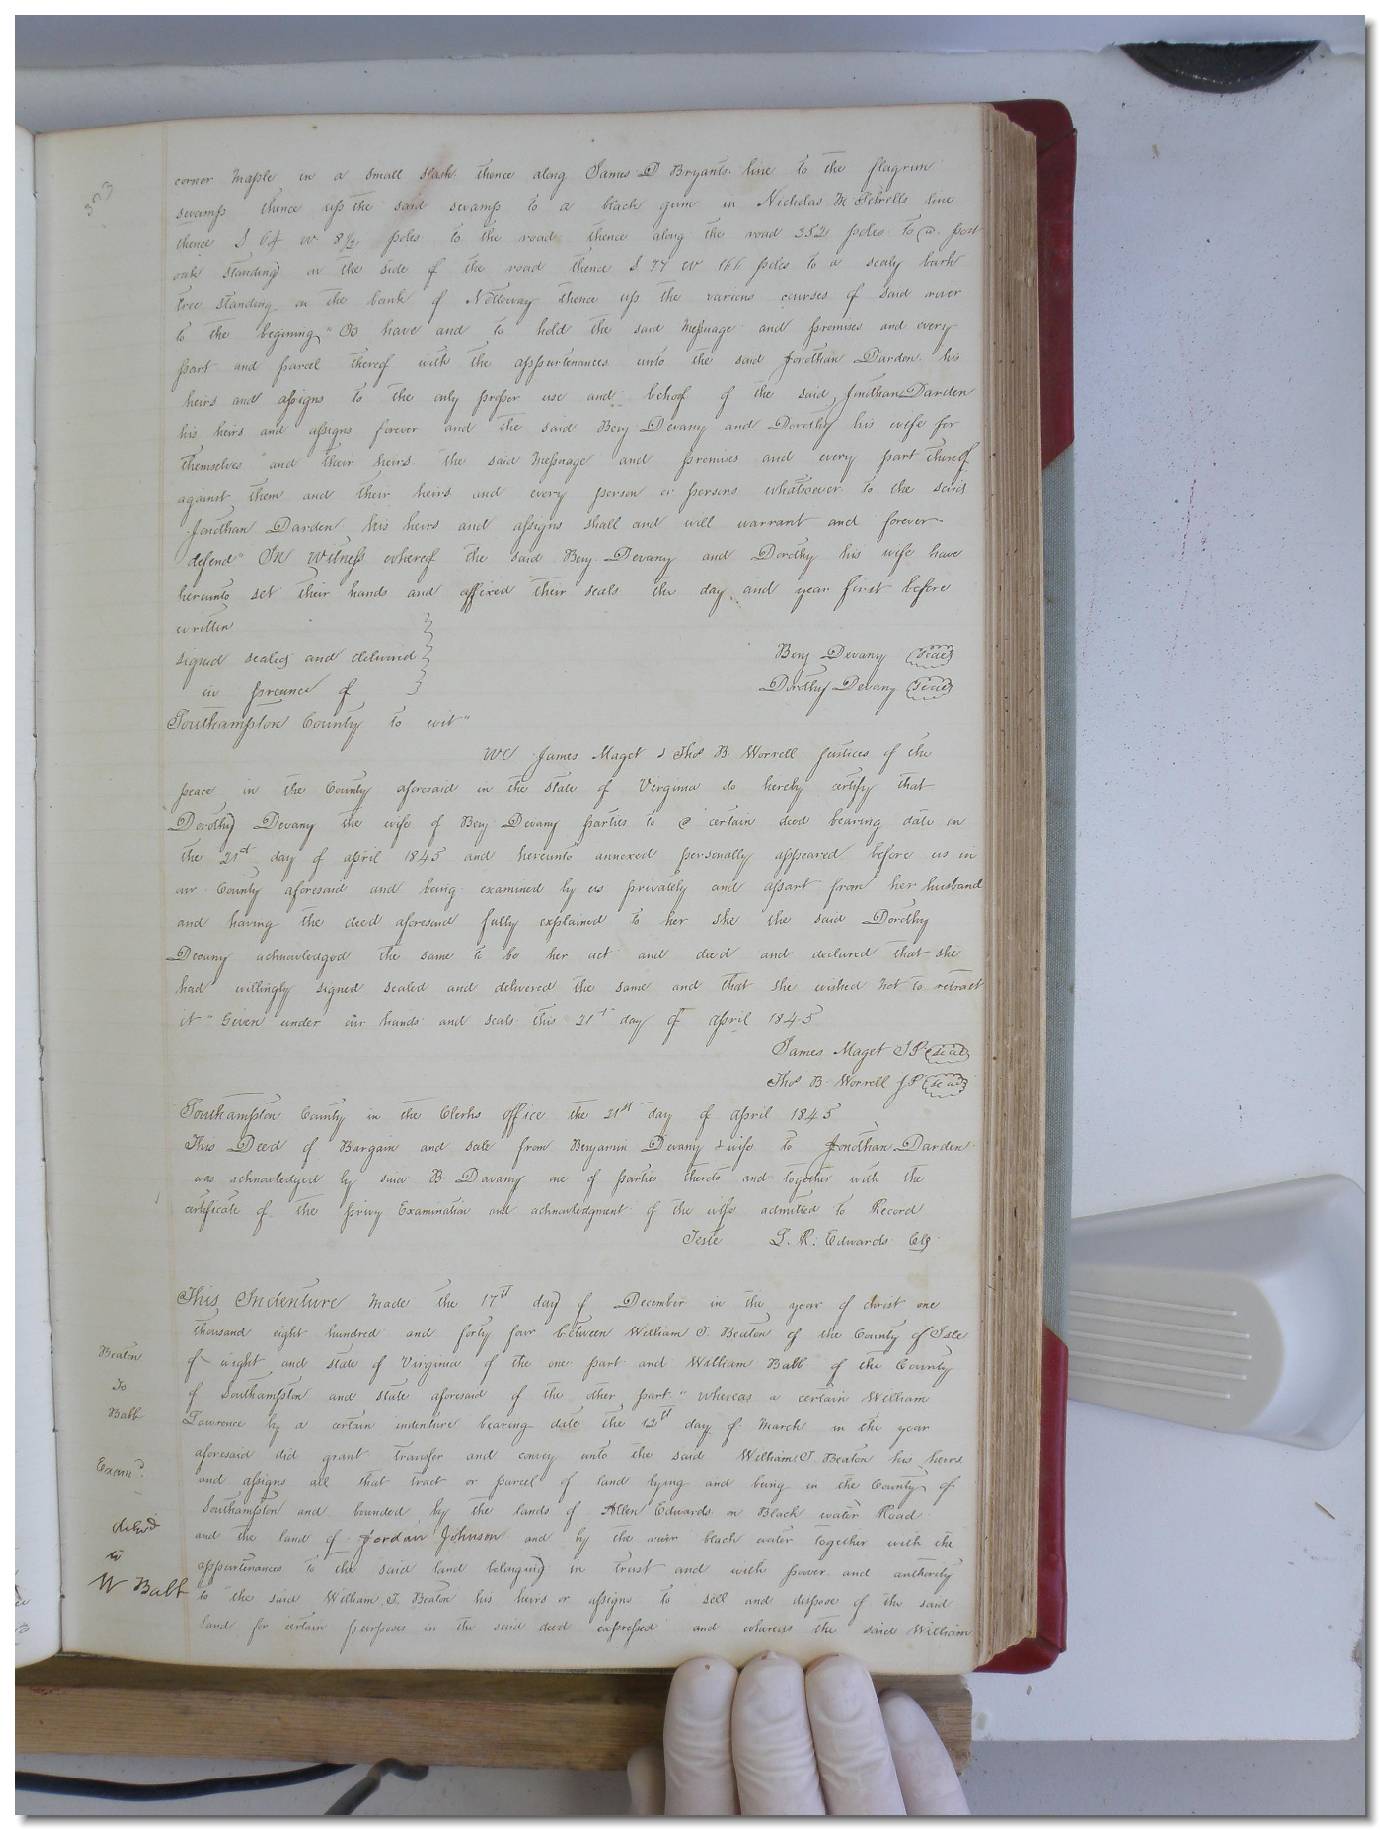 323
corner Maple in a small slash thence along James D Bryants line to the flagrun
swamp thence up the said swamp to a black gum in Nicholas M line
thence S 64 W 8½ poles to the road thence along the road 352 poles to a post
oak standing on the side of the road thence S 77 W 166 poles to a scaly bark
tree standing on the bank of Nottoway thence up the various courses of said river
to the begining" To have and to hold the said Messuage and premises and every
part and parcel thereof with the appurtenances unto the said Jonathan Darden his
heirs and assigns to the only proper use and behoof of the said Jonathan Darden
his heirs and assigns forever and the said Benj Devany and Dorothy his wife for
themselves and their heirs the said Messuage and premises and every part thereof
against them and their heirs and every person or persons whatsoever to the said
Jonathan Darden his heirs and assigns shall and will warrant and forever
defend" In Witness whereof the said Benj Devany and Dorothy his wife have
hereunto set their hands and affixed their seals the day and year first before
written
signed sealed and delivered
in presence of
Benj Devany (Seal)
Dorothy Devany (Seal)
Southampton County to wit"
We James Maget & Thos B Worrell Justices of the
peace in the County aforesaid in the state of Virginia do hereby certify that
Dorothy Devany the wife of Benj Devany parties to a certain deed bearing date on
the 21st day of april 1845 and hereunto annexed personally appeared before us in
our County aforesaid and being examined by us privately and apart from her husband
and having the deed aforesaid fully explained to her she the said Dorothy
Devany acknowledged the same to be her act and deed and declared that she
had willingly signed sealed and delivered the same and that she wished not to retract
it" Given under our hands and seals this 21st day of april 1845
James Maget JP (seal)
Thos B Worrell JP (seal)
Southampton County in the Clerks office the 21st day of april 1845
This Deed of Bargain and sale from Benjamin Devany & wife to Jonathan Darden
was acknowledged by said B Davany one of parties thereto and together with the
certificate of the privy Examination and acknowledgment of the wife admitted to Record
Teste L. R. Edwards Clk
This Indenture Made the 17th day of December in the year of christ one
thousand eight hundred and forty four between William T. Beaton of the County of Isle
of wight and state of Virginia of the one part and William Babb of the County
of Southampton and state aforesaid of the other part" whereas a certain William
Lawrence by a certain indenture bearing date the 12th day of March in the year
aforesaid did grant transfer and convey unto the said William T. Beaton his heirs
and assigns all that tract or parcel of land lying and being in the County of
Southampton and bounded by the lands of Allen Edwards on Black water Road
and the land of Jordan Johnson and by the river black water together with the
appurtenances to the said land belonging in trust and with power and authority
to the said William T. Beaton his heirs or assigns to sell and dispose of the said
land for certain purposes in the said deed expressed and whereas the said William
Beaton
To
Babb
Examd.
delivd
to
W Babb